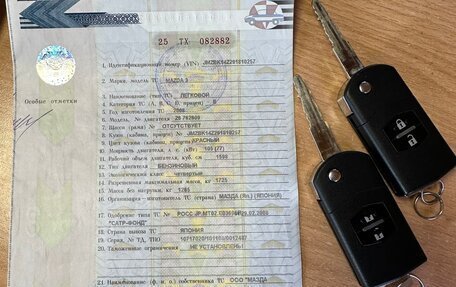 25 ТХ 082882
1. Идентификационный номер (VIN) JMZBK14Z291810257
2. Марка, модель ТС МАЗДА 3
Особые отметки
3. Наименование (тип ТС) ЛЕГКОВОЙ
4. Категория ТС (А, В, С, D, прицеп) В
5. Год изготовления ТС 2008
6. Модель, № двигателя Z6 762809
7. Шасси (рама) № ОТСУТСТВУЕТ
8. Кузов (кабина, прицеп) № JMZBK14Z291810257
9. Цвет кузова (кабины, прицепа) КРАСНЫЙ
10. Мощность двигателя, л. с. (кВт) 105 (77)
11. Рабочий объем двигателя, куб. см 1598
12. Тип двигателя БЕНЗИНОВЫЙ
13. Экологический класс ЧЕТВЕРТЫЙ
14. Разрешенная максимальная масса, кг 1725
15. Масса без нагрузки, кг 1265
16. Организация - изготовитель ТС МАЗДА (ЯПОНИЯ)
17. Одобрение типа ТС № РОСС JP.МТ02
"САТР-ФОНД"
18. Страна вывоза ТС ЯПОНИЯ
19. Серия, № ТД, ТПО
20. Таможенные ограничения НЕ УСТАНОВЛЕНЫ
21. Наименование (ф. и. о.) собственника ТС ООО "МАЗДА